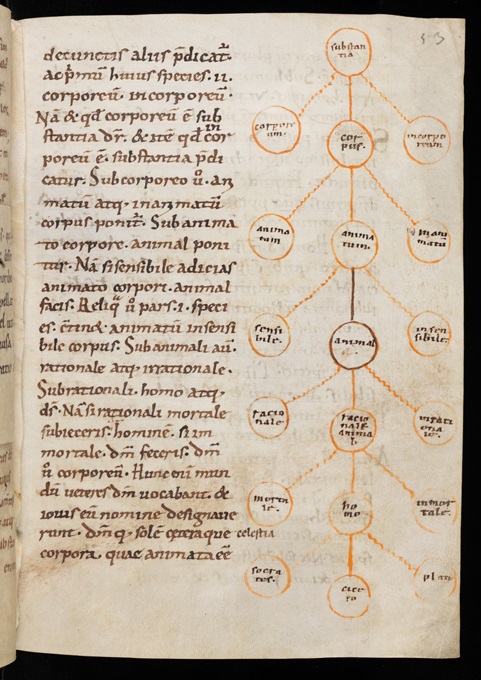 decunctis aliis p̄dicat̄.
ac p̄mū huius species · ii ·
corporeū · incorporeū ·
Nā & qđ corporeū ē sub
stantia dr̄ · & itē qđ incor
poreū ē · substantia p̄di
catur · Sub corporeo ū · an
matū atq · inanimatū
corpus ponit̄ · Sub anima
to corpore · animal poni
tur · Nā si sensibile adicias
animato corpori · animal
facis · Reliq̄ ū pars · i · speci
es · animatū insensi
bile corpus · Sub animali aū ·
rationale atq · irrationale ·
Sub rationali · homo atq ·
ds̄ · Nā si rationali mortale
subieceris · hominē · si im
mortale · dm̄ feceris · dm̄
ū corporeū · Hunc enī mun
dū veteres dm̄ vocabant · &
iovis eū nomine designave
runt · dm̄ q · solē ceteraque celestia
corpora · quae animata eē
53
substan
tia
corpore
um ·
cor
pus ·
incorpo
reum
anima
tum
anima
tum ·
inani
matū
sensi
bile ·
animal
insen
sibile ·
racio
nale ·
racio
nale
anima
l ·
irrati
ona
le ·
morta
le ·
ho
mo
inmor
tale ·
socra
tes ·
cice
ro
plat